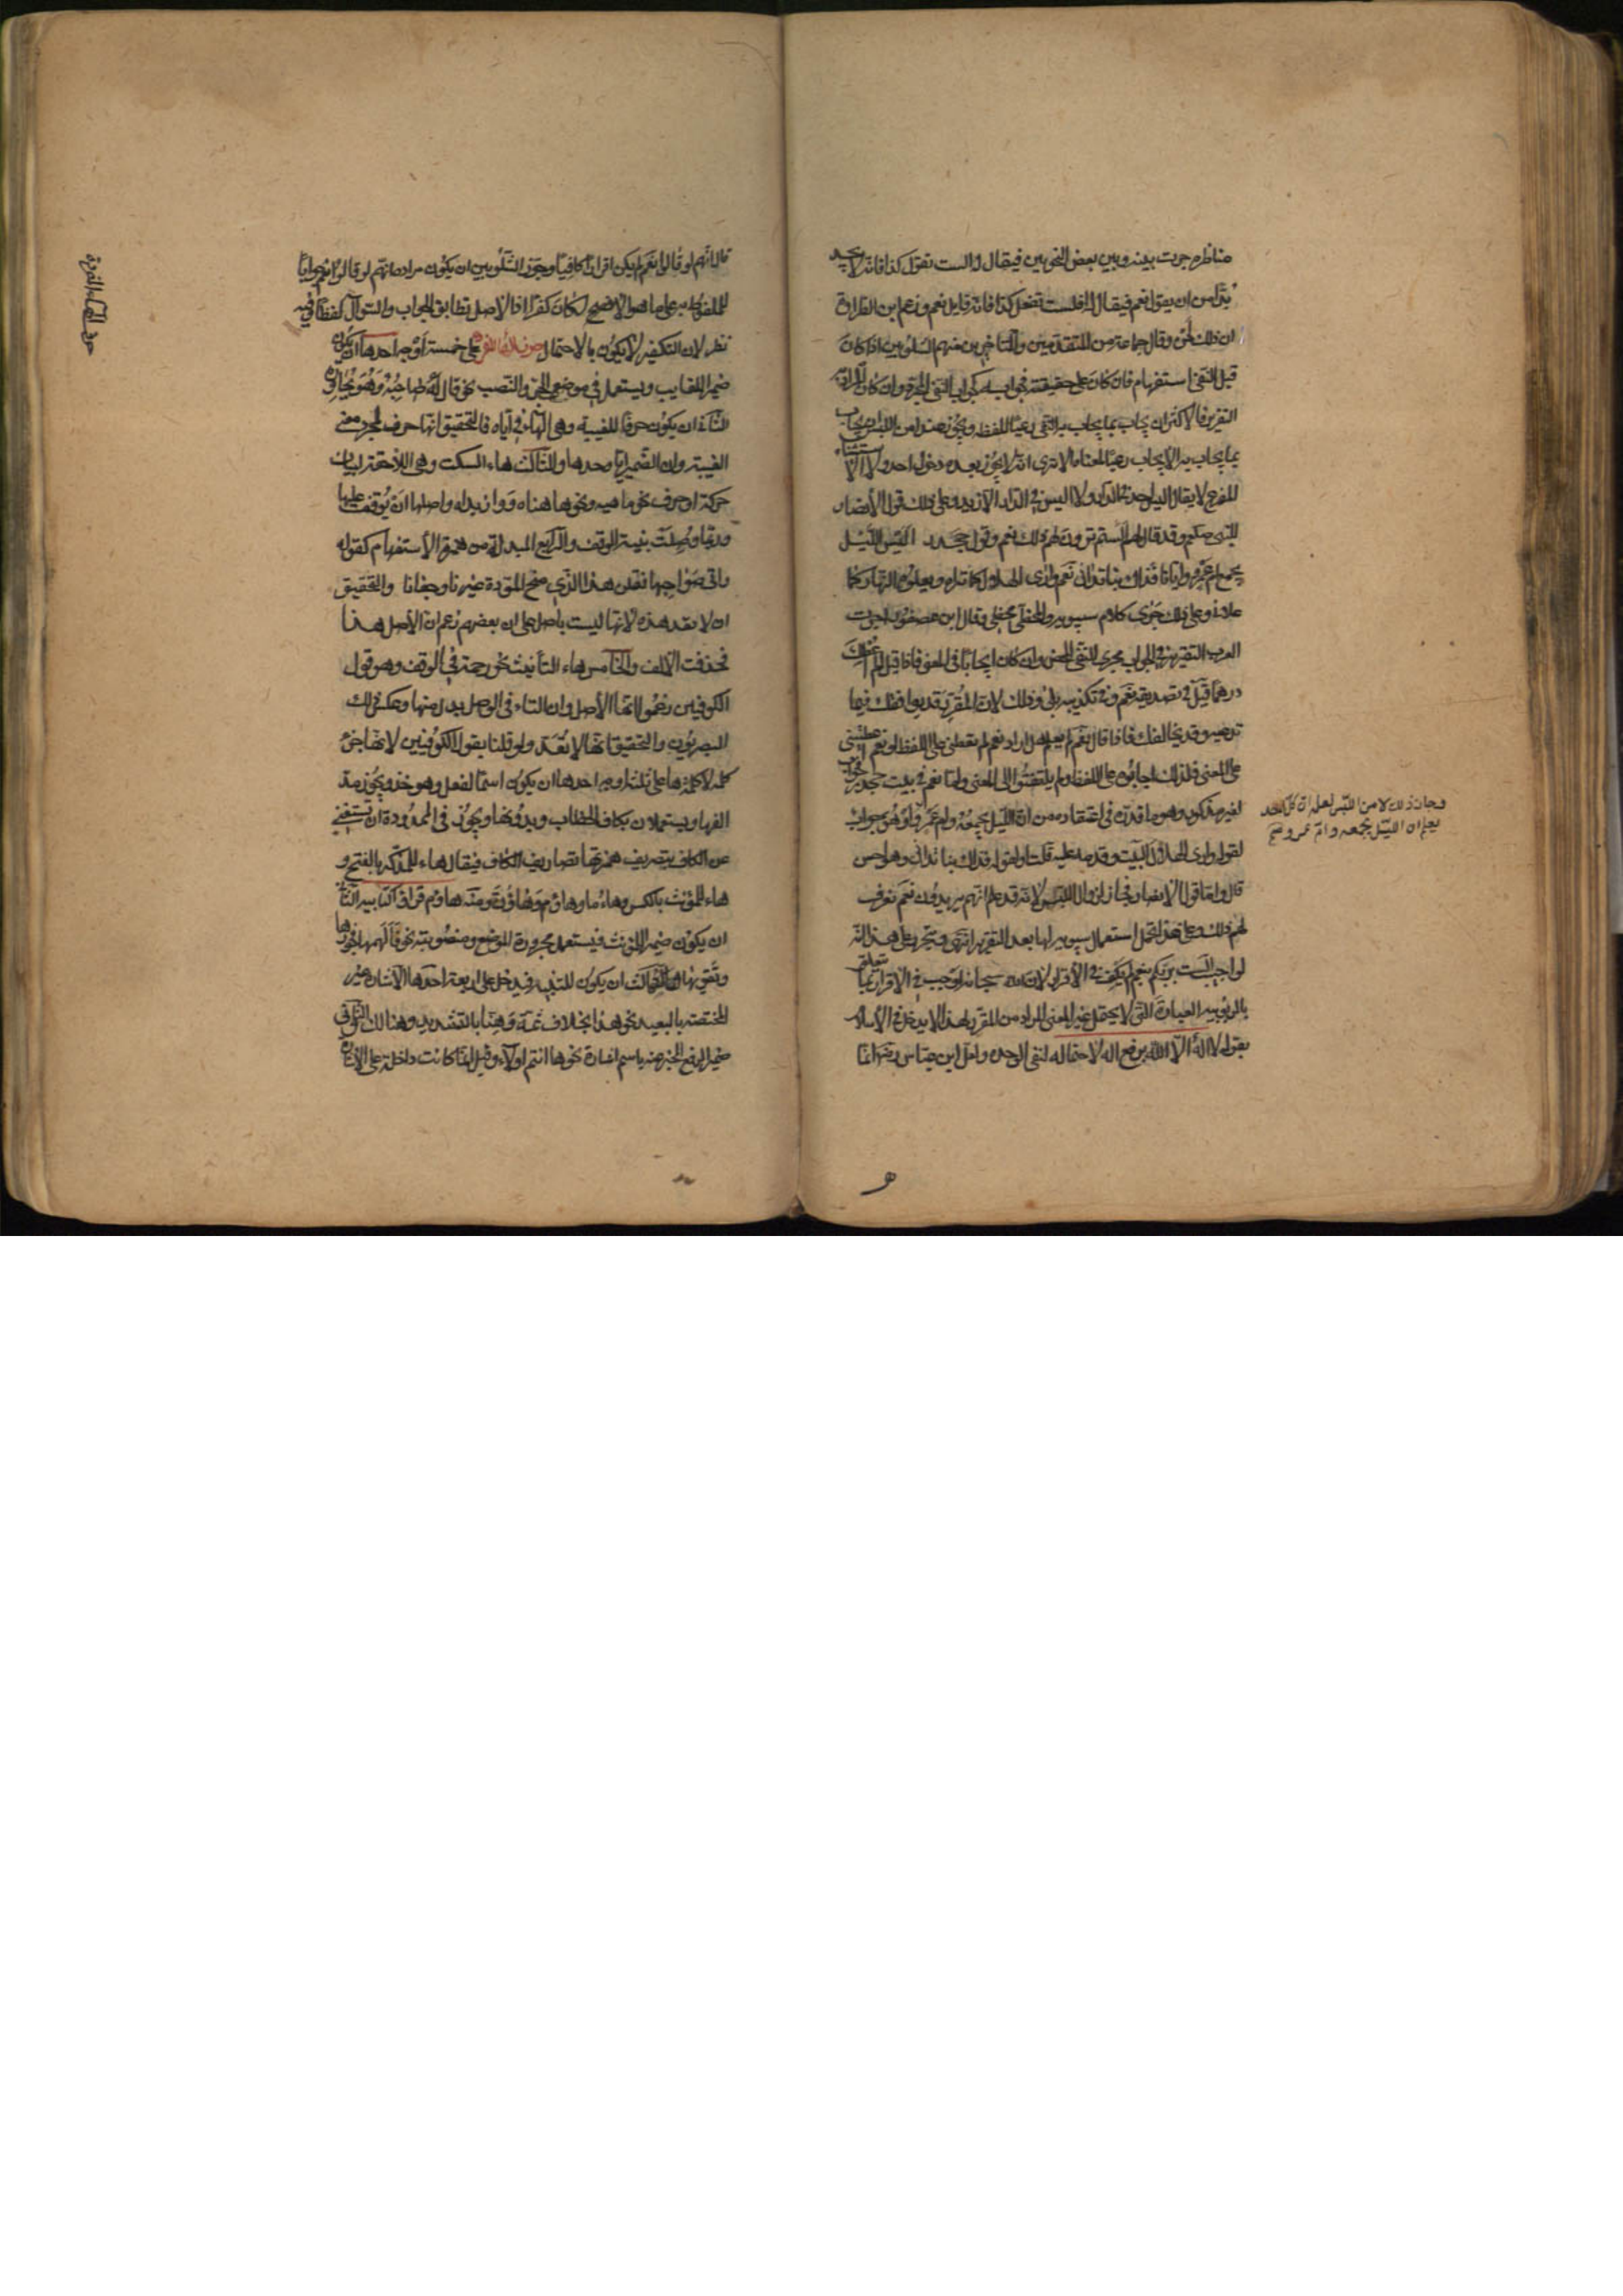 مناظرة جرت بينه وبين بعض النحويين فيقال له الست تقول كذا فانه لا يجد
بدا من ان يقول نعم فيقال له افلست تفعل كذا فانه قايل نعم وزعم ابن الطراوة
ان ذلك لحن وقال جماعة من المتقدمين والمتاخرين منهم الشلوبين اذا كان
قبل النفي استفهام فان كان على حقيقته فجوابه كجواب النفي المجرد وان كان مرادا به
التقرير فالاكثر ان يجاب بما يجاب به النفي رعيا للفظه ويجوز عند امن اللبس ان يجاب
بما يجاب به الايجاب رعيا لمعناه الا ترى انه لا يجوز بعده دخول احد ولا استثناء
المفرغ لا يقال اليس احد في الدار ولا اليس في الدار الا زيد وعلى ذلك قول الأنصار
للنبي صلعم وقد قال لهم الستم ترون لهم ذلك نعم وقول جحدر اليس الليل
يجمع ام عمرو وايانا فذاك بنا تداني نعم وارى الهلال كما تراه ويعلوها النهار كما
علاني وعلى ذلك جرى كلام سيبويه والمخطئ مخطئ وقال ابن عصفور اجرت
العرب التقرير في الجواب مجرى النفي المحض وان كان ايجابا في المعنى فاذا قيل الم اعطك
درهما قيل في تصديقه نعم وفي تكذيبه بلى وذلك لان المقرر قد يوافقك فيما
تدعيه وقد يخالفك فاذا قال نعم لم يعلم هل اراد نعم لم تعطني على اللفظ او نعم اعطيتني
على المعنى فلذلك اجابوه على اللفظ ولم يلتفتوا الى المعنى واما نعم في بيت جحدر فجواب
لغير مذكور وهو ما قدره في اعتقاده من ان الليل يجمعه وام عمرو او هو جواب
لقوله وارى الهلال البيت وقدمه عليه قلت او لقوله فذاك بنا تداني وهو احسن
قال واما قول الانصار فجاز لزوال اللبس لانه قد علم انهم يريدون نعم نعرف
لهم ذلك وعلى هذا يحمل استعمال سيبويه لها بعد التقرير انتهى ويتحرر على هذا انه
لو اجيب الست بربكم بنعم لم يكف في الأقرار لان الله سبحانه اوجب في الاقرار بما يتعلق
بالربوبية العبارة التي لا يحتمل غير المعنى المراد من المقر لهذا لا يدخل في الأسلام
بقوله لا اله الا الله برفع اله لاحتماله لنفي الوحدة ولعل ابن عباس رضه انما
وجاز ذلك لامن اللبس لعلمه ان كل احد
يعلم ان الليل يجمعه وام عمرو صح
قال انهم لو قالوا نعم لم يكن اقرارا كافيا وجوز الشلوبين ان يكون مراده انهم لو قالوا نعم جوابا
للملفوظ به على ما هو الافصح لكان كفرا اذ الاصل تطابق الجواب والسوال لفظا وفيه
نظر لان التكفير لا يكون بالاحتمال حرف الهاء المفردة على خمسة اوجه احدها ان يكون
ضميرا للغايب ويستعمل في موضعي الجر والنصب نحو قال له صاحبه وهو يحاوره
الثاني ان يكون حرفا للغيبة وهي الهاء في اياه فالتحقيق انها حرف لمجرد معنى
الغيبة وان الضمير ايا وحدها والثالث هاء السكت وهي اللاحقة لبيان
حركة او حرف نحو ماهيه ونحو هاهناه ووازيداه واصلها ان يوقف عليها
وربما وصلت بنية الوقف والرابع المبدلة من همزة الأستفهام كقوله
واتى صواحبها فقلن هذا الذي منح المودة غيرنا وجفانا والتحقيق
ان لا تعد هذه لانها ليست باصل على ان بعضهم زعم ان الأصل هذا
فحذفت الالف والخامس هاء التأنيث نحو رحمة في الوقف وهو قول
الكوفيين زعموا انها الأصل وان التاء في الوصل بدل منها وعكس ذلك
البصريون والتحقيق انها لا تعد ولو قلنا بقول الكوفيين لانها جزء
كلمة لا كلمة ها على ثلثة اوجه احدها ان يكون اسما لفعل وهو خذ ويجوز مد
الفها ويستعملان بكاف الخطاب وبدونها ويجوز في الممدودة ان تستغني
عن الكاف بتصريف همزتها تصاريف الكاف فيقال هاء للمذكر بالفتح و
هاء للمؤنث بالكسر وهاؤما وهاؤم وهاؤن ومنه هاؤم اقرؤا كتابيه الثاني
ان يكون ضميرا للمؤنث فيستعمل مجرورة الموضع ومنصوبته نحو فالهمها فجورها
وتقويها والثالث ان يكون للتنبيه فيدخل على اربعة احدها الاشارة غير
المختصة بالبعيد نحو هذا بخلاف ثمة وهنا بالتشديد وهنالك والثاني
ضمير الرفع المخبر عنه باسم اشارة نحو ها انتم اولاء وقيل انما كانت داخلة على الاشارة
حرف الهاء المفردة